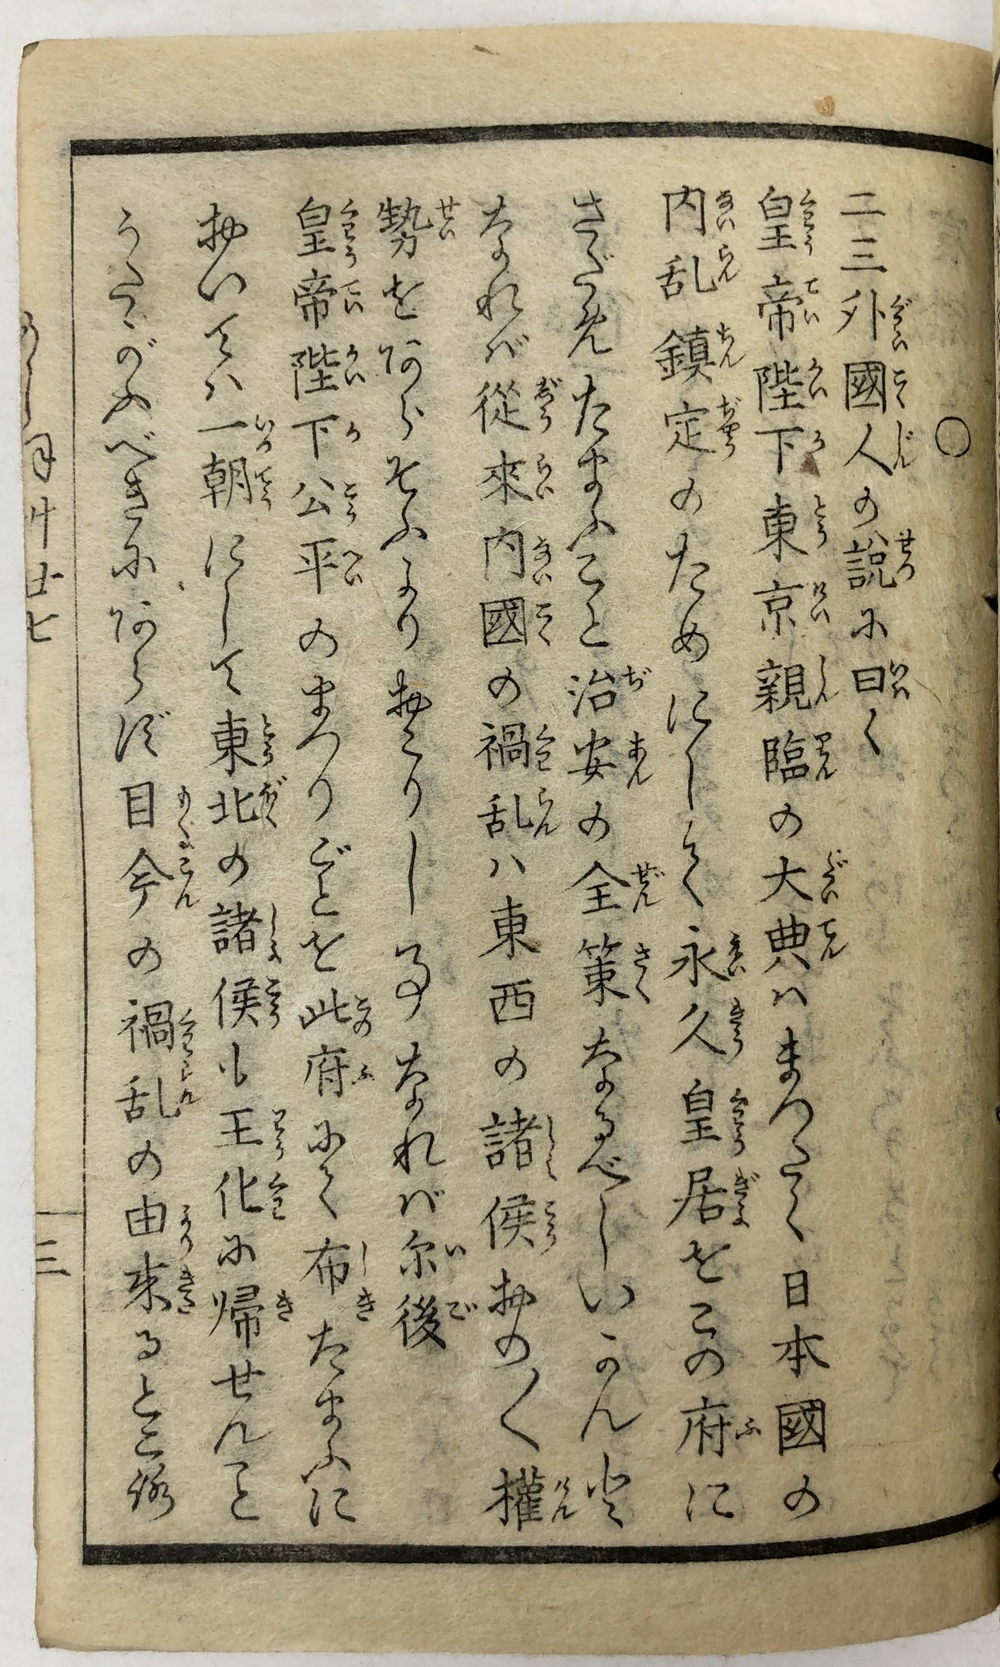 〇
二三外國人の說に曰く
皇帝陛下東京親臨の大典ハまつたく日本國の
内乱鎮定のためにして永久皇居をこの府に
さだめたまふこと治安の全策なるべしいかんと
なれバ從來内國の禍乱ハ東西の諸侯おの〱權
勢をあらそふよりおこりし事なれバ尓後
皇帝陛下公平のまつりごとを此府にて布たまふに
おいてハ一朝にして東北の諸侯も王化に帰せんこと
うたがふべきにあらず目今の禍乱の由来るところ
廿七
三